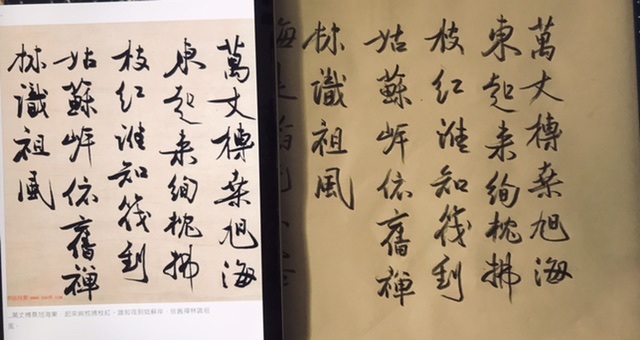 萬丈榑桑旭海
東起来絢枕拂
枝红谁知筏到
姑蘇岸依舊禅
林識祖風
萬丈榑桑旭海東，起來絢枕拂枝紅。誰知筏到姑蘇岸，依舊禪林識祖
風。
萬丈榑桑旭海
東起来絢枕拂
枝红谁知筏到
姑蘇岸依舊禅
林識祖風